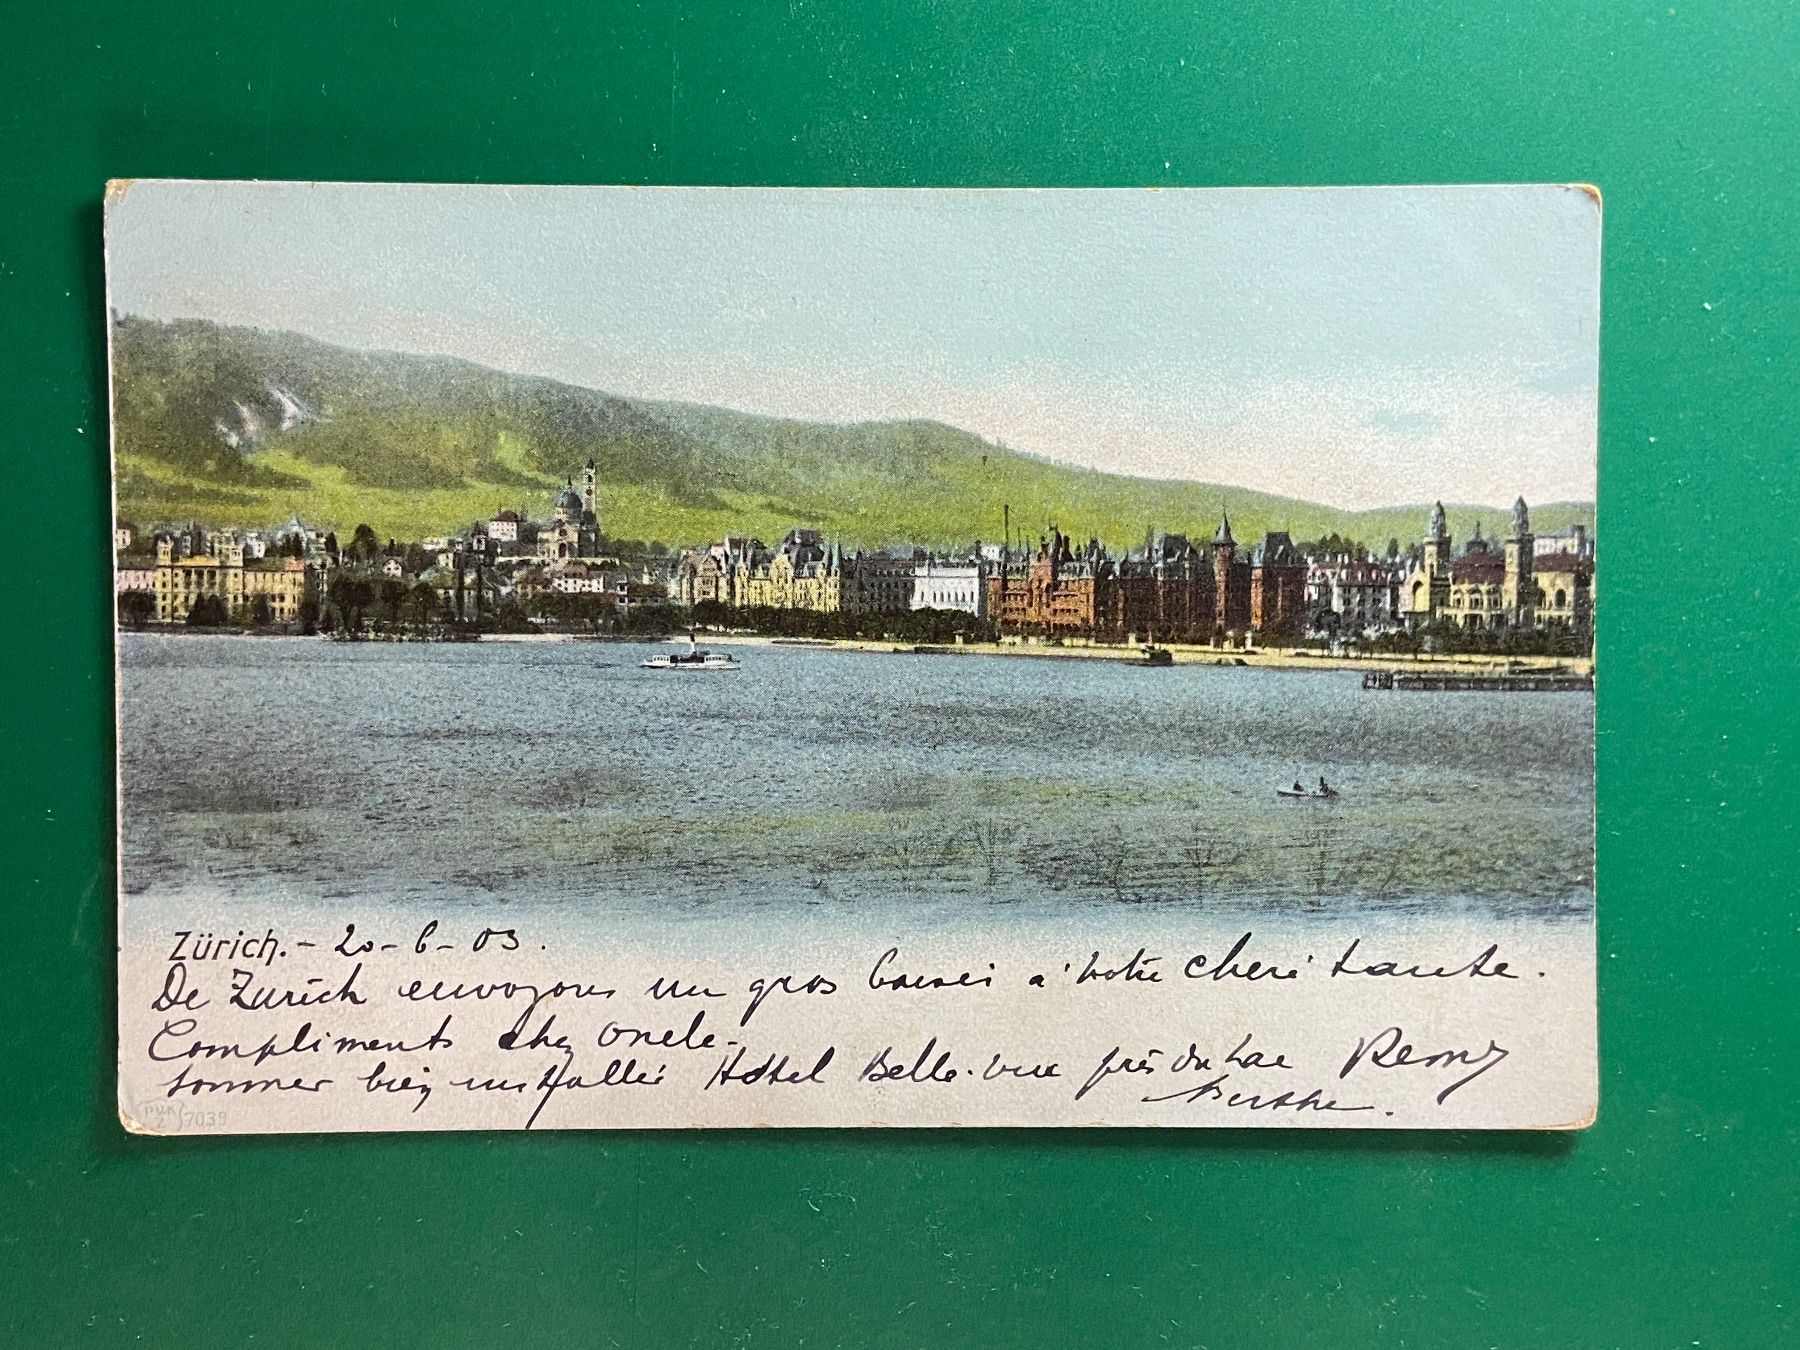 Zürich. - 20 - 6 - 03.
De Zurich envoyons un gros baeser a' votre cheri tante.
Compliments chez oncle.
sommer bien installer Hôtel Belle-vue près du Lac Remy
Berthe.
PVK Z 7039